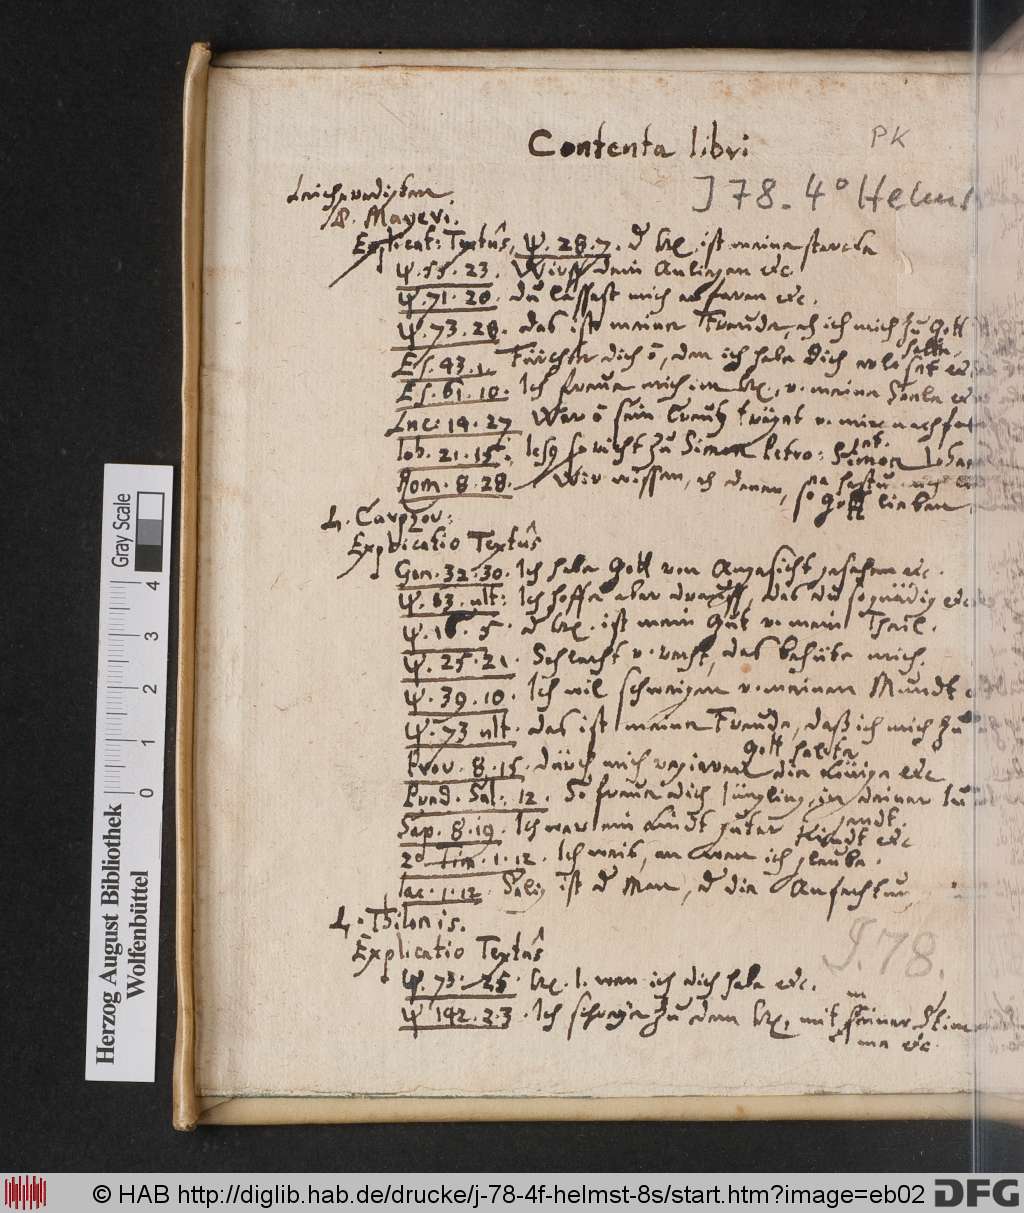 Contenta libri
PK
J 78. 4° Helmst
Leichpredigten
D. Mayeri.
Explicat: Textûs, Ψ. 28. 7. d Hr. ist meine starcke
Ψ. 55. 23. Wirff dein Anliegen etc.
Ψ. 71. 20. du lässest mich erfaren etc.
Ψ. 73. 28. das ist meine Freude, dz ich mich zu Gott
halte.
Es. 43. 1. Fürchte dich ō, den ich habe dich erlöset etc.
Es. 61. 10. Ich freue mich im Hr. v. meine Seele etc
Luc: 14. 27 Wer ō sein Creutz trägt v. mir nachfol
Joh. 21. 15. spricht zu Simon Petro: Simon Johan
na hastu mich
Rom. 8. 28. Wir wissen, dz denen, so Gott lieben
L. Carpzov:
Explicatio Textûs
Gen. 32. 30. Ich habe Gott von Angesicht gesehen etc.
Ψ. 13. ult: Ich hoffe aber drauff, das du so gnädig etc
Ψ. 16. 5. d Hr. ist mein Gut v. mein Theil.
Ψ. 25. 21. Schlecht v. recht, das behüte mich.
Ψ. 39. 10. Ich wil schweigen v. meinen Mundt
Ψ. 73 ult. das ist meine Freude, daß ich mich zu
Gott halte
Prov. 8. 15. durch mich regieren die Könige etc
Pred. Sal. 12. So freue dich Jüngling, in deiner Ju
gendt.
Sap. 8. 19. Ich war ein Kindt guter
2d Tim. 1. 12. Ich weis, an wen ich gleube.
Jac. 1. 12. Selig ist d Man, d die Anfechtung
L. Thilonis.
Explicatio Textûs
J. 78.
Ψ. 73. 25. Hr. 1. wen ich dich habe etc.
Ψ 142. 2. 3. Ich schreye zu dem Hr. mit meiner Stim
me etc.
Herzog August Bibliothek
Wolfenbüttel
Gray Scale
0 1 2 3 4
© HAB http://diglib.hab.de/drucke/j-78-4f-helmst-8s/start.htm?image=eb02
DFG